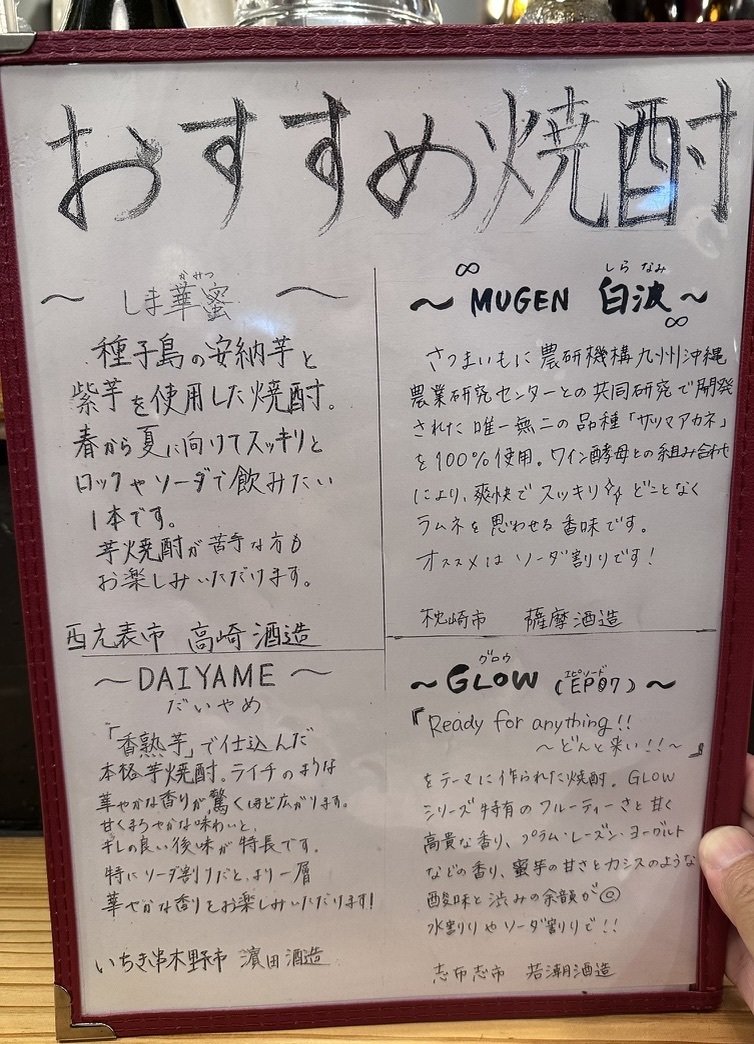 おすすめ焼酎
かみつ
〜 しま華蜜 〜
種子島の安納芋と
紫芋を使用した焼酎。
春から夏に向けてスッキリと
ロックやソーダで飲みたい
1本です。
芋焼酎が苦手な方も
お楽しみいただけます。
西之表市 高崎酒造
しら なみ
∞
〜 MUGEN 白波 〜
∞
さつまいもに農研機構九州沖縄
農業研究センターとの共同研究で開発
された唯一無二の品種「サツマアカネ」
を100%使用。ワイン酵母との組み合わせ
により、爽快でスッキリ✨どことなく
ラムネを思わせる香味です。
オススメはソーダ割りです!
枕崎市 薩摩酒造
〜 DAIYAME 〜
だいやめ
「香熟芋」で仕込んだ
本格芋焼酎。ライチのような
華やかな香りが驚くほど広がります。
甘くまろやかな味わいと、
キレの良い後味が特長です。
特にソーダ割りだと、より一層
華やかな香りをお楽しみいただけます!
いちき串木野市 濵田酒造
グロウ エピソード
〜 GLOW (EP07) 〜
『Ready for anything!!
〜どんと来い!!〜』
をテーマに作られた焼酎。GLOW
シリーズ特有のフルーティーさと甘く
高貴な香り、プラム・レーズン・ヨーグルト
などの香り、蜜芋の甘さとカシスのような
酸味と渋みの余韻が◎
水割りやソーダ割りで!!
志布志市 若潮酒造